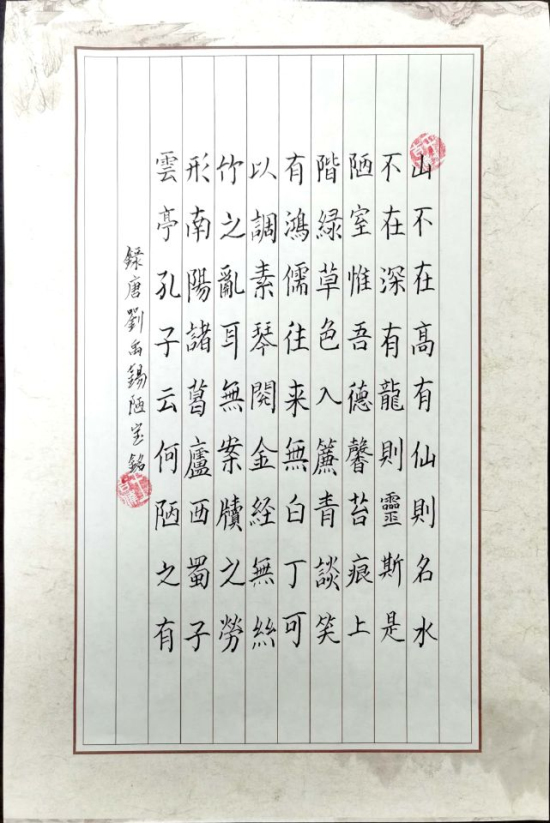 山不在高有仙則名水
不在深有龍則靈斯是
陋室惟吾德馨苔痕上
階緑草色入簾青談笑
有鴻儒往来無白丁可
以調素琴閱金経無絲
竹之亂耳無案牘之勞
形南陽諸葛廬西蜀子
雲亭孔子云何陋之有
録唐劉禹錫陋室銘